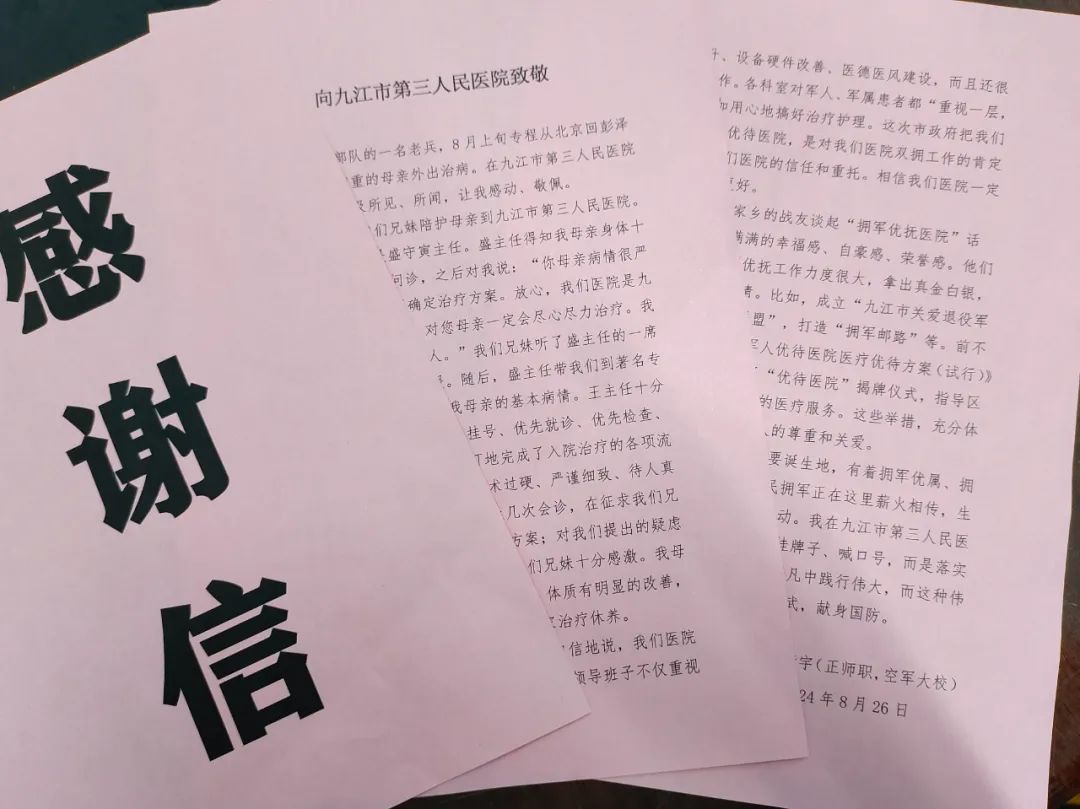 感
谢
信
向九江市第三人民医院致敬
部队的一名老兵，8月上旬专程从北京回彭泽
重的母亲外出治病。在九江市第三人民医院
所见、所闻，让我感动、敬佩。
们兄妹陪护母亲到九江市第三人民医院。
盛守寅主任。盛主任得知我母亲身体十
问诊，之后对我说：“你母亲病情很严
确定治疗方案。放心，我们医院是九
对您母亲一定会尽心尽力治疗。我
人。”我们兄妹听了盛主任的一席
。随后，盛主任带我们到著名专
我母亲的基本病情。王主任十分
挂号、优先就诊、优先检查、
地完成了入院治疗的各项流
术过硬、严谨细致、待人真
几次会诊，在征求我们兄
方案；对我们提出的疑虑
们兄妹十分感激。我母
体质有明显的改善，
治疗休养。
信地说，我们医院
领导班子不仅重视
、设备硬件改善、医德医风建设，而且还很
作。各科室对军人、军属患者都“重视一层，
加用心地搞好治疗护理。这次市政府把我们
优待医院，是对我们医院双拥工作的肯定
们医院的信任和重托。相信我们医院一定
更好。
家乡的战友谈起“拥军优抚医院”话
满满的幸福感、自豪感、荣誉感。他们
优抚工作力度很大，拿出真金白银，
情。比如，成立“九江市关爱退役军
盟”，打造“拥军邮路”等。前不
军人优待医院医疗优待方案（试行）》
“优待医院”揭牌仪式，指导区
的医疗服务。这些举措，充分体
人的尊重和关爱。
要诞生地，有着拥军优属、拥
民拥军正在这里薪火相传，生
动。我在九江市第三人民医
挂牌子、喊口号，而是落实
凡中践行伟大，而这种伟
式，献身国防。
宇（正师职，空军大校）
24年8月26日